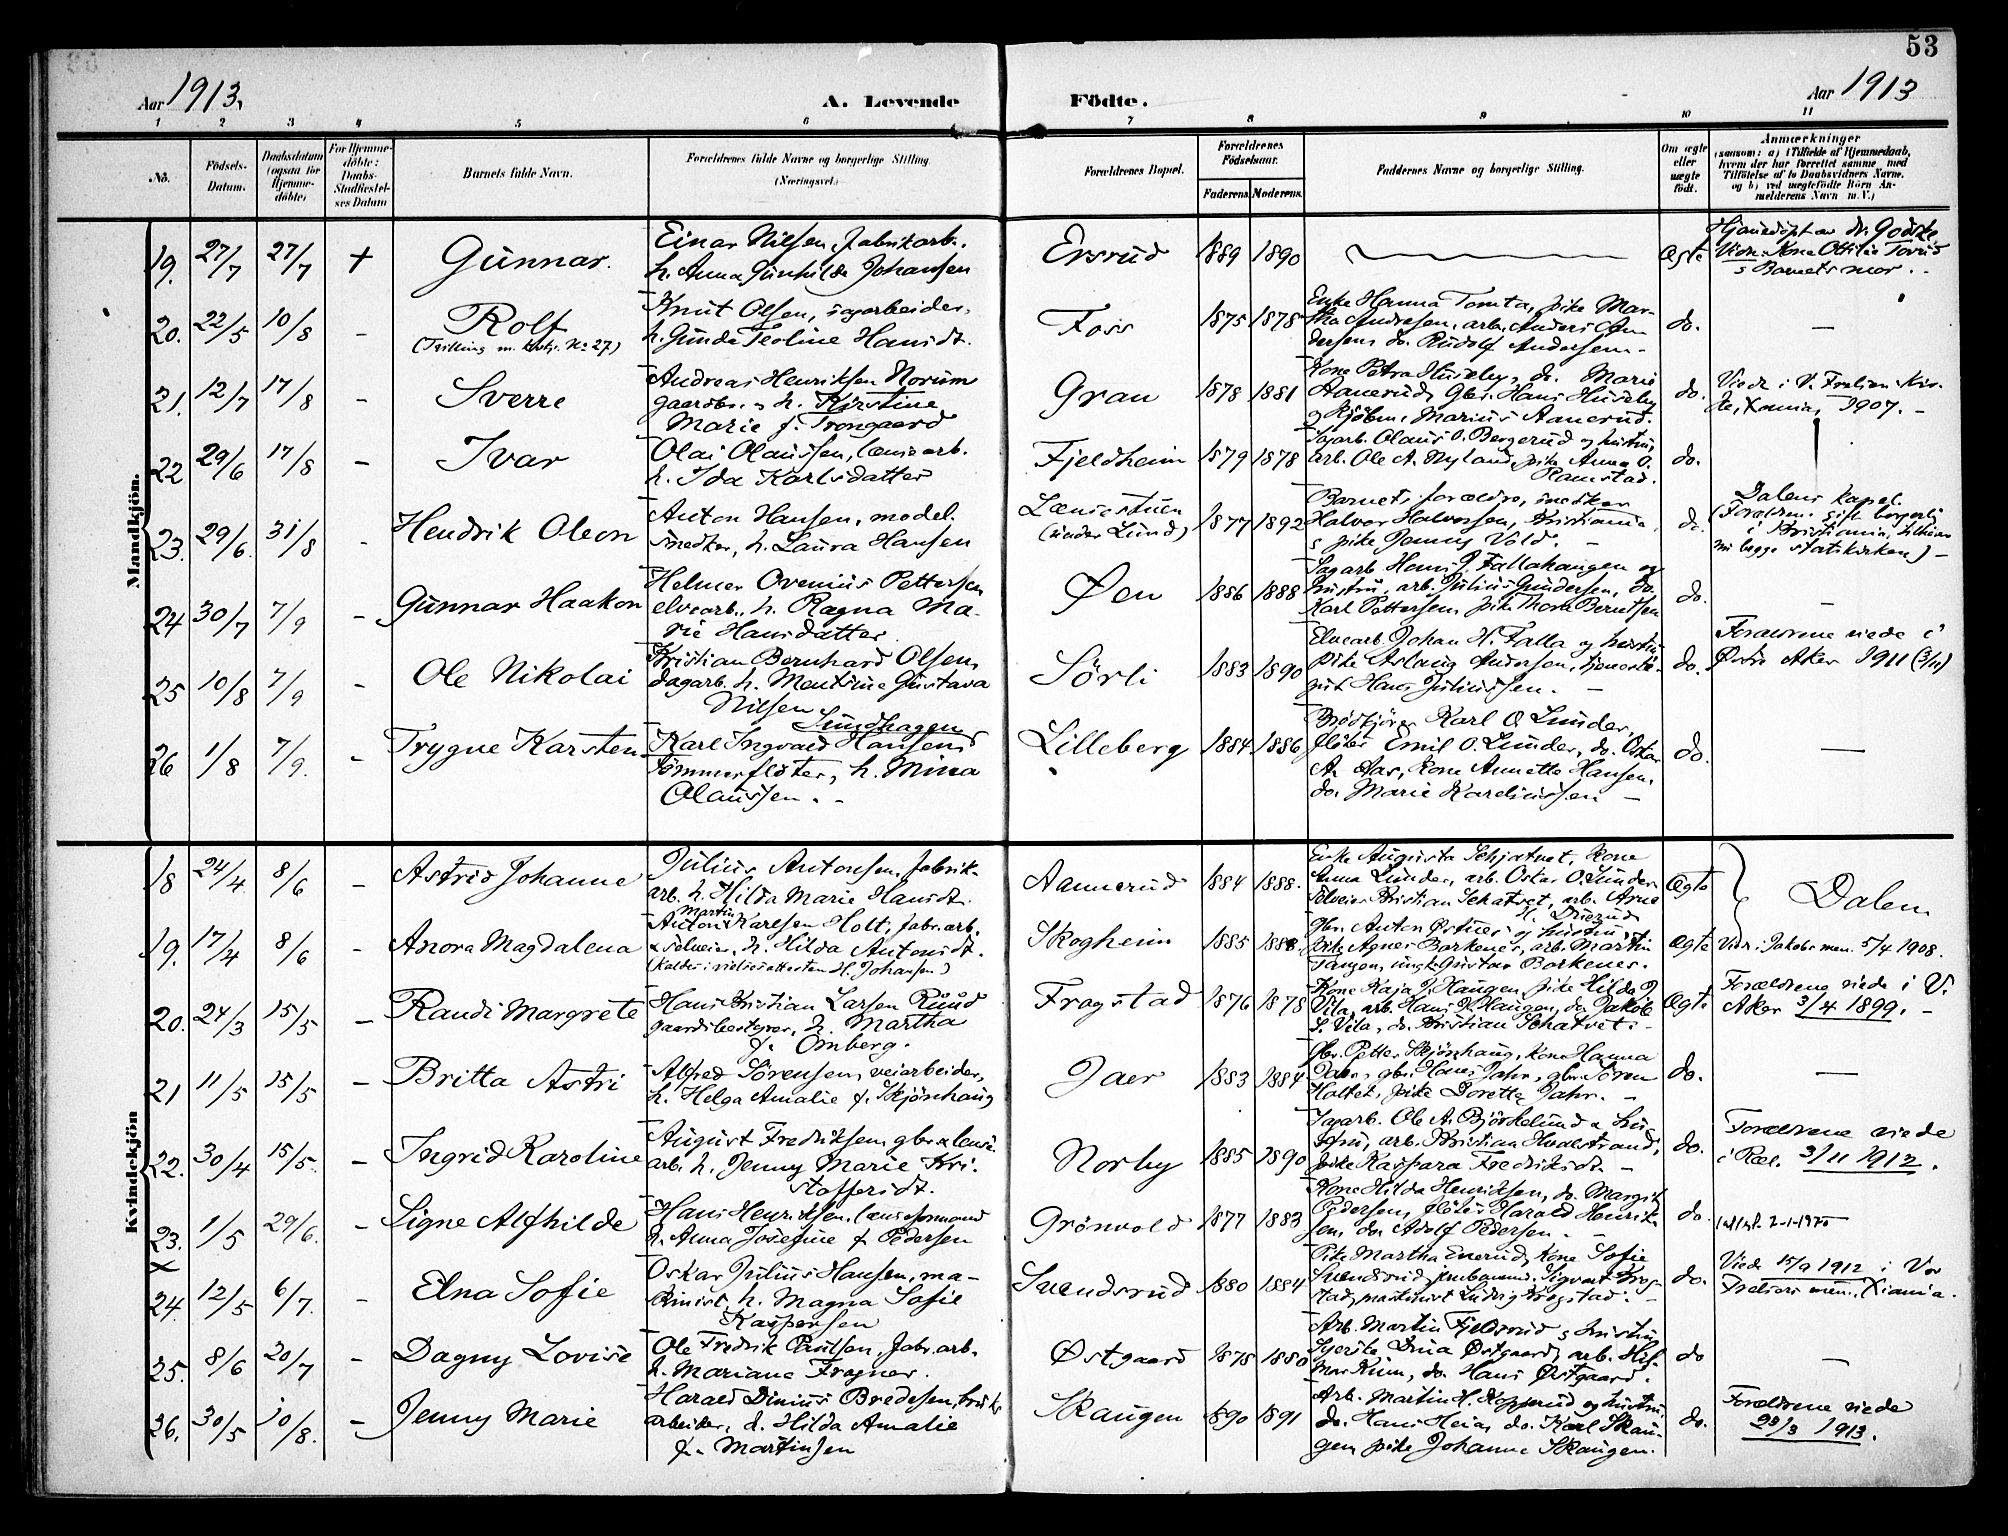 53
Aar 1913.
A. Levende
Födte.
Aar 1913
1 2 3 4 5 6 7 8 9 10 11
No.
Födsels-
Datum.
Daabsdatum
(ogsaa for
Hjemme-
döbte)
For Hjemme-
döbte:
Daabs-
Stadfæstel-
ses Datum
Barnets fulde Navn.
Forældrenes fulde Navne og borgerlige Stilling.
(Næringsvei.)
Forældrenes Bopæl.
Forældrenes
Födselsaar.
Faderens. Moderens.
Faddernes Navne og borgerlige Stilling.
Om ægte
eller
uægte
födt.
Anmærkninger
(saasom: a) i Tilfælde af Hjemmedaab,
hvem der har forrettet samme med
Tilföielse af to Daabsvidners Navne.
og b) ved uægtefödte Börn An-
melderens Navn m. V.)
Mandkjön.
19. 27/7 27/7 + Gunnar.
Einar Nilsen, fabrikarb.
h. Anna Gunhilde Johansen
Ersrud 1889 1890 ægte
Hjemedöpt av dr. Godske
Vidn: Kone Ottilie Torud
& Barnets mor.
20. 22/5 10/8 - Rolf
(Tvilling m. kvkj. No 27)
Knut Olsen, sagarbeider,
h. Gunda Teoline Hansdt.
Foss 1875 1878
Enke Hanna Tomta, pike Mar-
tha Andresen, arb. Anders An-
dersen, do. Rudolf Andersen.
do. -
21. 12/7 17/8 - Sverre
Andreas Henriksen Norum
gaardbr. & h. Kirstine
Marie f. Trongaard
Gran 1878 1881
Kone Petra Huseby, do. Marie
Aanerud, Gbr. Hans Huseby
& Kjöbm. Marius Aanerud.
do.
Viede i V. Frelsers Kir-
ke, Xania, 1907. -
22 29/6 17/8 - Ivar
Olai Olaussen, lænsearb.
h. Ida Karlsdatter
Fjeldheim 1879 1878
Sagarb. Olaus O. Bergerud og hustru,
arb. Ole A. Nyland, pike Anna O.
Ramstad.
do.
23. 29/6. 31/8 - Hendrik Oleon
Anton Hansen, model-
snedker, h. Laura Hansen
Lænsestuen
(under Lund) 1877 1892
Barnets forældre, snedker
Halvor Halvorsen, Kristiania,
& pike Jenny Vold. -
do.
Dalens kapel.
(Foreldrene gift borgerlig
i Kristiania, tilhörer
nu begge statskirken) -
24 30/7 7/9 - Gunnar Haakon
Helmer Ovenius Pettersen
elvearb., h. Ragna Ma-
rie Hansdatter
Øen 1886 1888
Sagarb. Hans J. Fallahaugen og
hustru, arb. Julius Gundersen, do.
Karl Pettersen, pike Thora Berntsen
do. -
25 10/8 7/9 - Ole Nikolai
Kristian Bernhard Olsen,
dagarb. h. Mentine Gustava
Nilsen
Sörli 1883 1890
Elvearb. Johan H. Falla og hustru,
pike Aslaug Andersen, tjeneste-
gut Hans Juliussen. -
do.
Forældrene viede i
Østre Aker 1911 (3/11)
26 1/8 7/9. - Trygve Karsten
Lundhagen
Karl Ingvald Hansen
tömmerflöter, h. Mina
Olaussen. -
Lilleberg 1884 1886
Brödkjörer Karl O. Lunder,
flöter Emil O. Lunder, do. Oskar
A. Aas, Kone Annette Hansen,
do. Marie Kareliussen -
do. -
Kvindekjön
18 24/4 8/6 - Astrid Johanne
Julius Antonsen, fabrik-
arb. h. Hilda Marie Hansdt.
Aannerud 1884 1888.
Enke Augusta Schjatvet, Kone
Anna Lunder, arb. Oskar O. Lunder
Kristian Schatvet, arb. Arne
ægte
Dalen
19. 17/4 8/6 - Anora Magdalena
Martin
Anton Karlsen Holt, fabr. arb.
& selveier, h. Hilda Antonsdt.
(Kaldes i vielsesattesten H. Johansen)
Skogheim 1885 1888.
Gbr. Anton Østnes og hustru,
pike Agnes Barkenes, arb. Martin
Tangen, ungk. Gustav Barkenes.
ægte
Vidr. i Jakobs men. 5/4 1908.
20. 24/3 15/5 - Randi Margrete
Hans Kristian Larsen Ruud
gaardsbestyrer, h. Martha
f. Omberg.
Frogstad 1876 1878
Kone Kaja J. Haugen, pike Hilda J.
Vila, arb. Hans J. Haugen, do. Jakob
S. Vila, do. Kristian Schatvet. -
ægte
Forældrene viede i V.
Aker 3/4 1899. -
21 11/5 15/5 - Britta Astri
Alfred Sörensen, veiarbeider,
h. Helga Amalie f. Skjönhaug
Jaer 1883 1884
Gbr. Petter Skjönhaug, Kone Hanna
Jahr, gbr. Hans Jahr, gbr. Sören
Holtet, pike Dorette Jahr. -
do. -
22. 30/4 15/5. - Ingrid Karoline
August Fredriksen, gbr. & lænse-
arb. h. Jenny Marie Kri-
stoffersdt.
Norby 1885 1890
Sagarb. Ole A. Björkelund & hu-
stru, arb. Kristian Hvalstrand,
pike Kaspara Fredriksdt. -
do.
Forældrene viede
i Ræl. 3/11 1912.
23. 1/5 29/6. - Signe Alfhilde
Hans Henriksen, lænseformand
h. Anna Josefine f. Pedersen
Grönvold 1877 1883
Kone Hilda Henriksen, do. Margit
Pedersen, flöter Harald Henrik-
sen, do. Adolf Pedersen. -
do.
2-1-1970
x
24. 12/5 6/7. - Elna Sofie
Oskar Julius Hansen, ma-
skinist, h. Magna Sofie
Kaspersen
Svendsrud 1880 1884
Pike Martha Enerud, Kone Sofie
Svendsrud, jernbanemd. Sigvart Frog-
stad, maskinist Ludvig Frogstad. -
do.
Viede 15/9 1912 i Vor
Frelsers men., Xiania.
25. 8/6 20/7 - Dagny Lovise
Ole Fredrik Paulsen, fabr. arb.
h. Mariane Fragner.
Østgaard 1878 1880
Arb. Martin Fjeldsrud & hustru,
Syerske Lina Østgaard, arb. Hil-
mar Ruun, do. Hans Østgaard.
do -
26. 30/5 10/8. - Jenny Marie
Harald Dinius Bredesen, bruks-
arbeider, h. Hilda Amalie
f. Martinsen
Skaugen 1890 1891
Arb. Martin H. Kopperud og hustru,
do. Hans Heia, do. Karl Skau-
gen, pike Johanne Skaugen.
do.
Forældrene viede
23/3 1913.